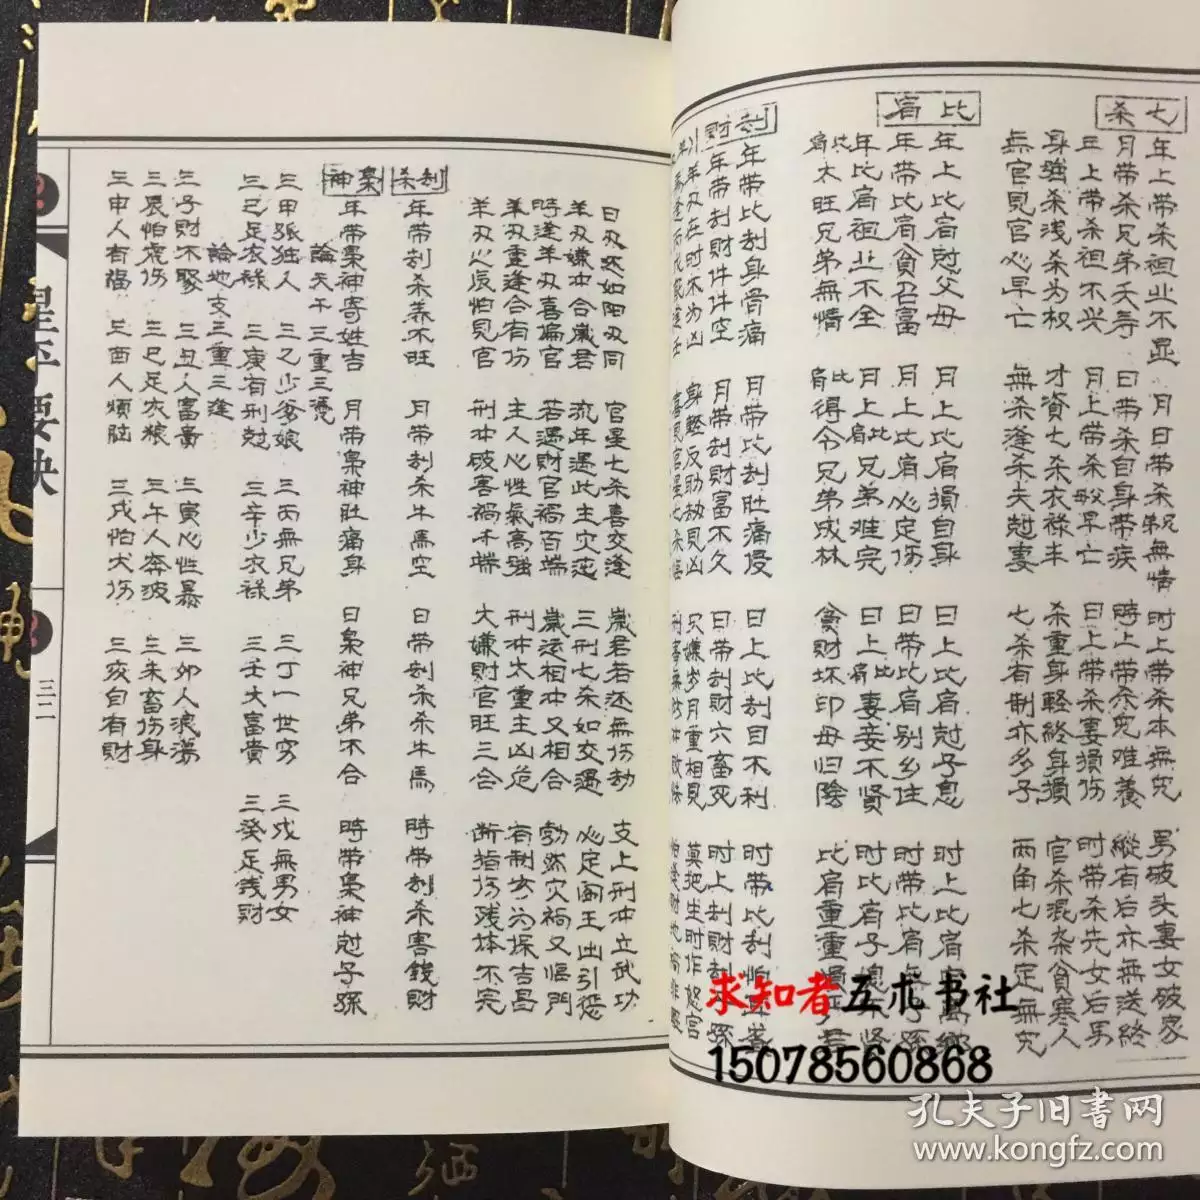 七杀
年上带杀祖业不显 月日带杀親無情 时上带杀本無兇 男破头妻女破家
月带杀兄弟夭寿 日带杀自身带疾 時上带杀兇难養 縱有后亦無送終
年上带杀祖不兴 月上带杀殺早亡 日上带杀妻損伤 时带杀先女后男
身強杀浅杀为权 才資七杀衣祿丰 杀重身輕終身損 官杀混杂貧寒人
無官見官必早亡 無杀逢杀夫尅妻 七杀有制亦多子 两角七杀定無兇
比肩
年上比肩尅父母 月上比肩損自身 日上比肩尅子息 时上比肩
年带比肩貪召富 月上比肩必定伤 日带比肩别乡住 时带比肩
年比肩祖业不全 月上比肩兄弟难完 日上比肩妻妾不贤 时比肩子
比肩太旺兄弟無情 比肩得令兄弟成林 貪財坏印母归陰 比肩重重
刦財
年带比刦身骨痛 月带比刦肚痛侵 日上比刦目不利 时带比刦怕
年带刦財件件空 月带刦財富不久 日带刦財六畜死 时上刦財
年羊刃在时不为凶 身 反助劫見凶 只嫌岁月重相見 莫把生时作怒宫
日刃还如阳刃同 官星七杀喜交逢 歲君若还無伤劫 支上刑冲立武功
羊刃嫌冲合歲君 流年遇此主灾迍 三刑七杀如交遇 必定阎王出引惩
時逢羊刃喜偏官 若遇財官禍百端 歲运相冲又相合 勃然灾禍又临門
羊刃重逢合有伤 主人心性氣高強 刑冲太重主凶危 有制方为保吉昌
羊刃必辰怕見官 刑冲破害禍千端 大嫌財官旺三合 断指伤残体不完
刦杀
年带刦杀养不旺 月带刦杀牛馬空 日带刦杀杀牛馬 時带刦杀害錢財
梟神
年带梟神寄姓吉 月带梟神肚痛身 日梟神兄弟不合 時带梟神尅子孫
論天干三重三憑
三甲孤独人 三乙少爹娘 三丙無兄弟 三丁一世穷 三戊無男女
三己足衣祿 三庚有刑尅 三辛少衣祿 三壬大富貴 三癸足錢財
論地支三重三逢
三子財不聚 三丑人富貴 三寅心性暴 三卯人浪荡
三辰怕虎伤 三巳足衣粮 三午人奔波 三未畜伤身
三申人有福 三酉人烦脑 三戌怕犬伤 三亥自有財
星平要决
三二
求知者五术书社
15078560868
孔夫子旧书网
www.kongfz.com